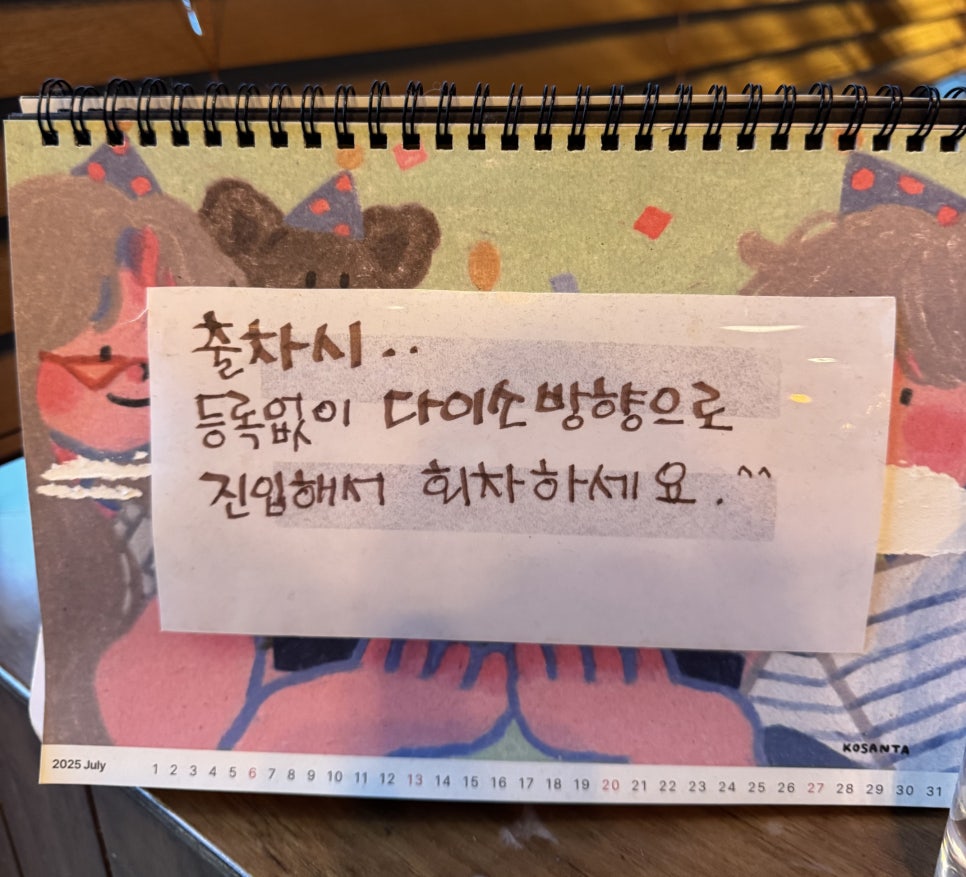 출차시..
등록없이 다이소방향으로
진입해서 회차하세요.^^
KOSANTA
2025 July 1 2 3 4 5 6 7 8 9 10 11 12 13 14 15 16 17 18 19 20 21 22 23 24 25 26 27 28 29 30 31